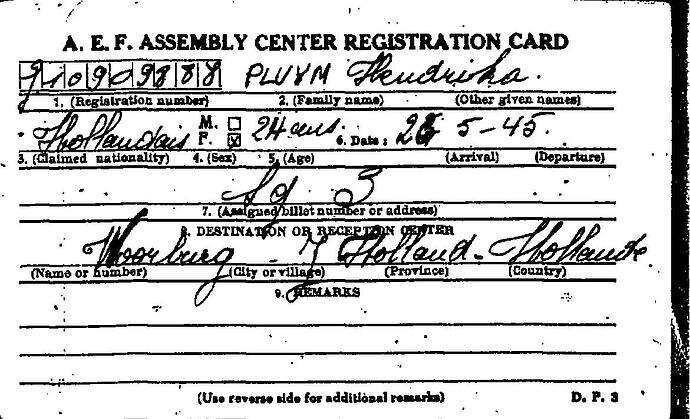 A. E. F. ASSEMBLY CENTER REGISTRATION CARD
PLUYM Hendrika.
1. (Registration number) 2. (Family name) (Other given names)
Hollandais M. ☐ F. ☒ 24 ans. 6. Date: 26 5-45.
3. (Claimed nationality) 4. (Sex) 5. (Age) (Arrival) (Departure)
3
7. (Assigned billet number or address)
8. DESTINATION OR RECEPTION CENTER
Voorburg - Z Holland - Hollande
(Name or number) (City or village) (Province) (Country)
9. REMARKS
(Use reverse side for additional remarks) D. P. 3